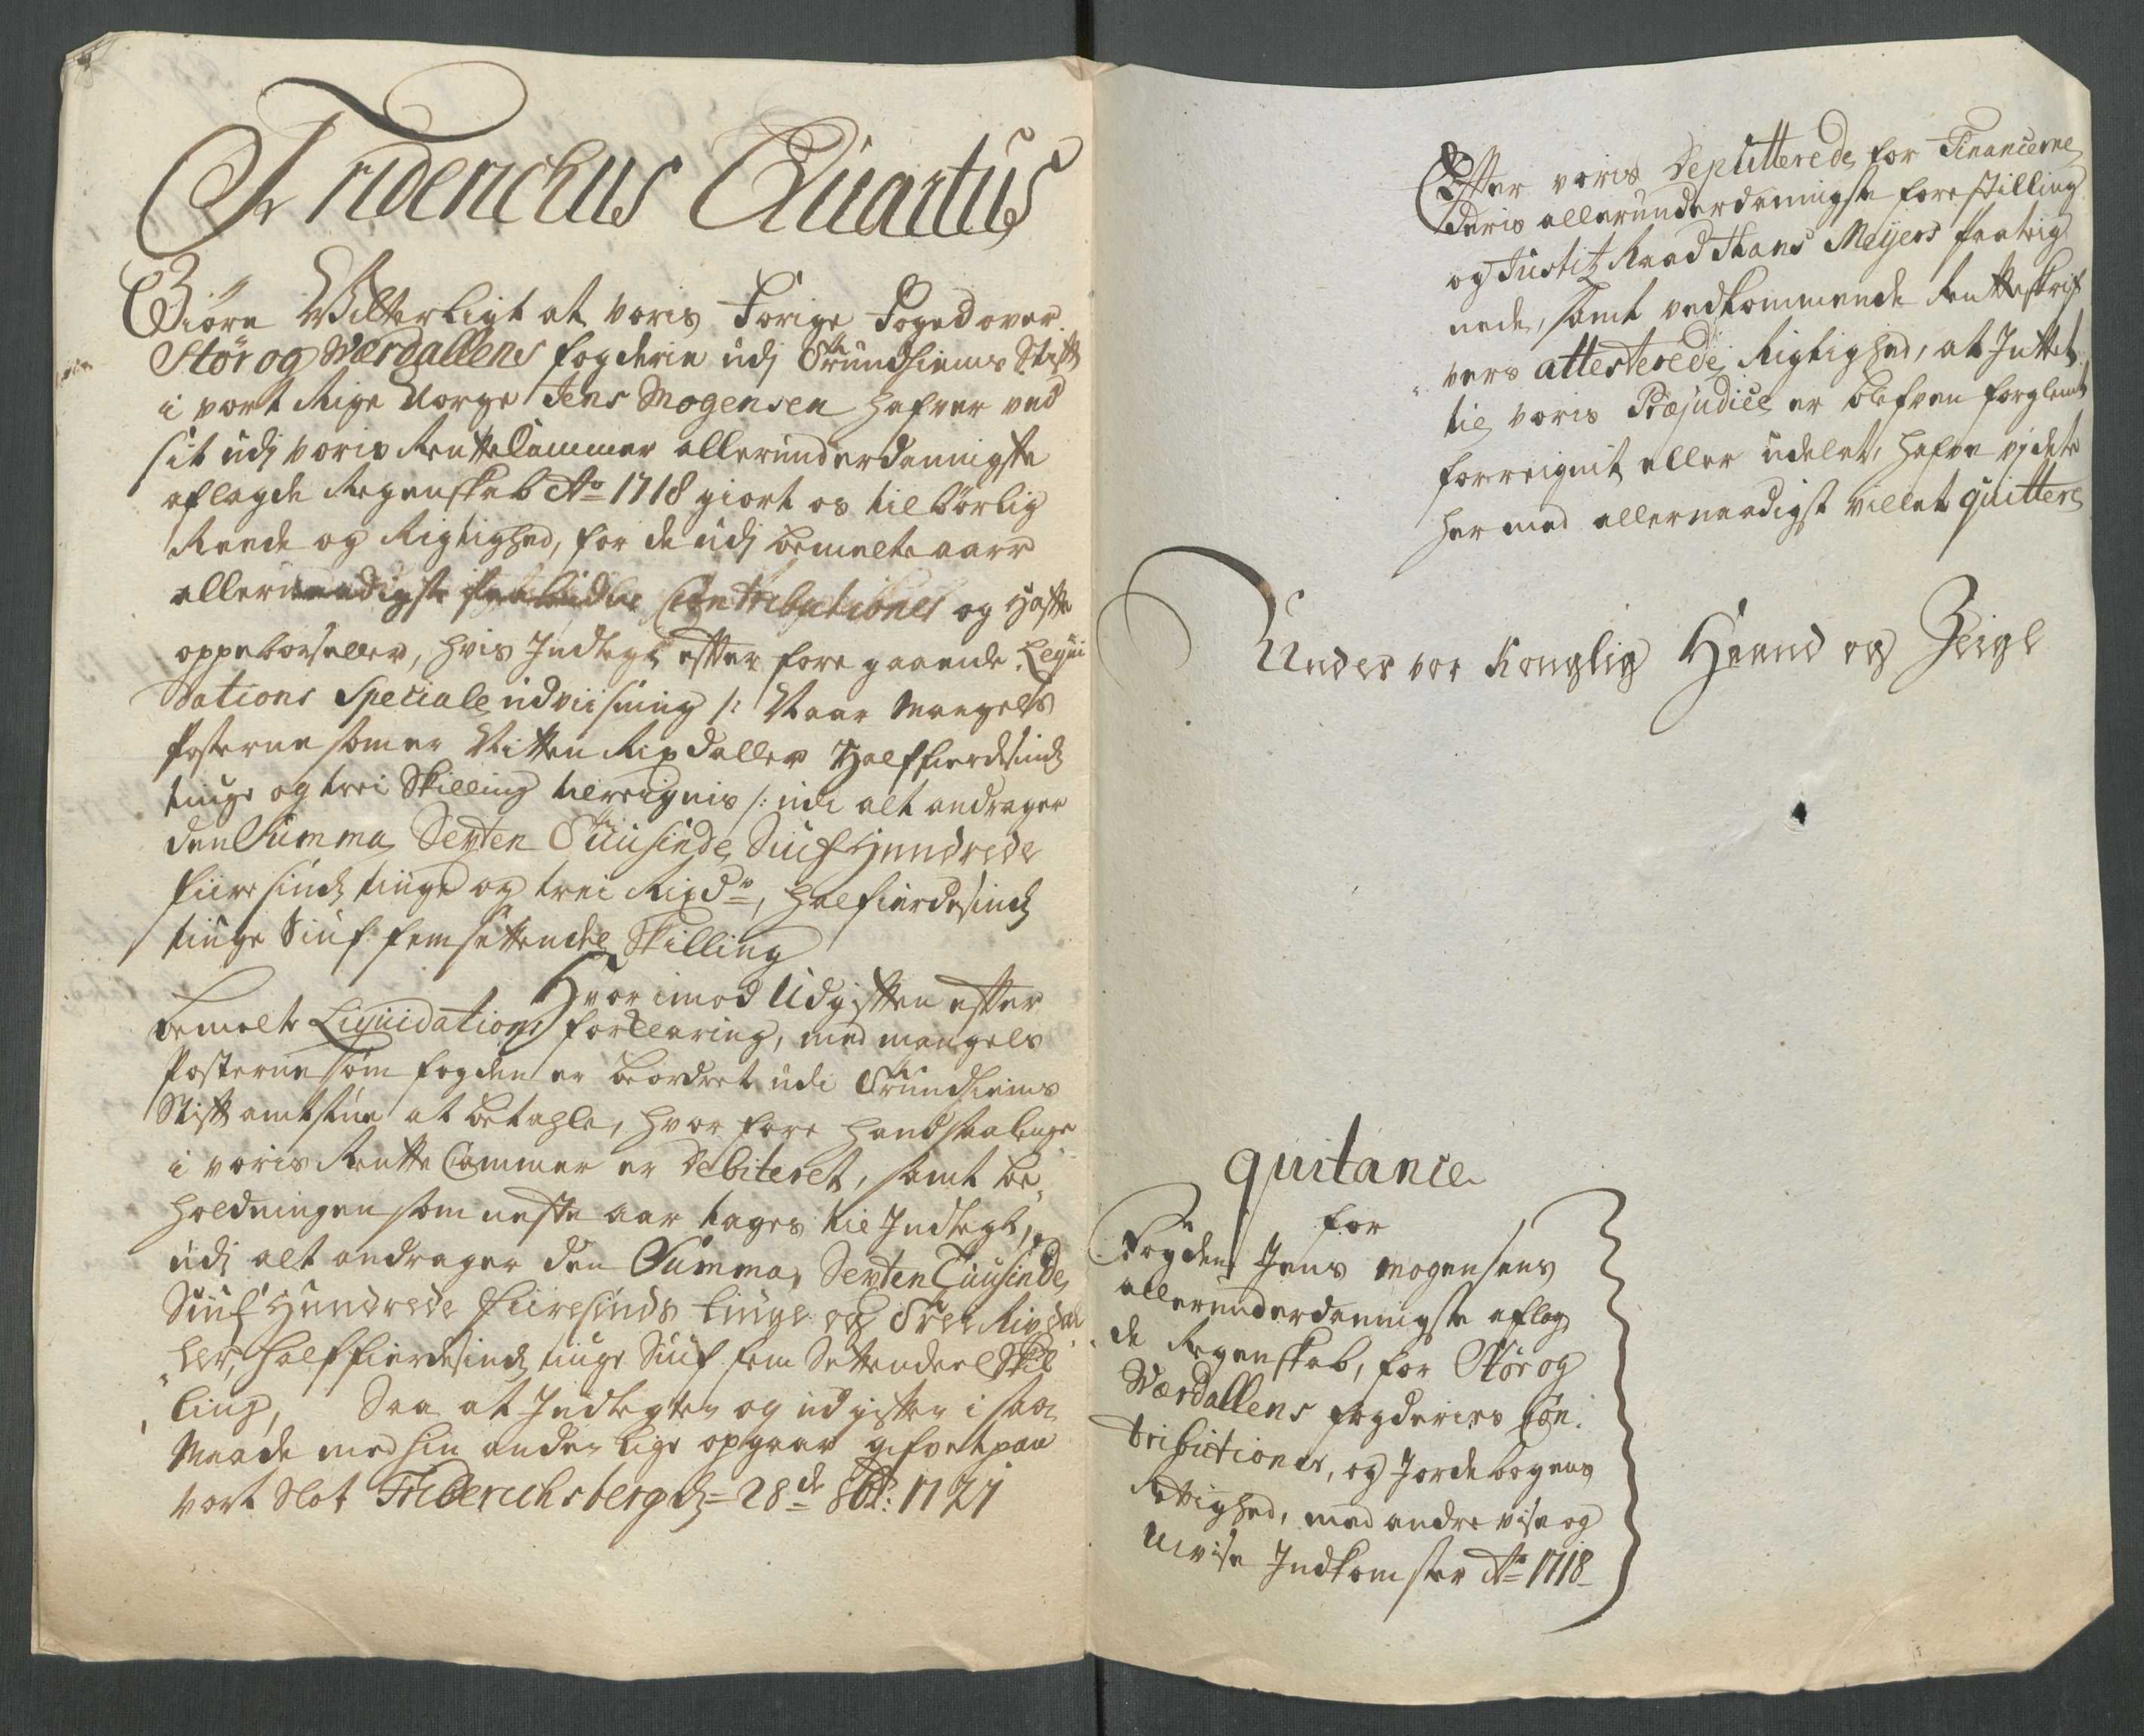 Fridericus Quartus
Giöre Witterligt at voris Forige Foged over
Stör og Værdallens fogderie udj Trundhiems Stift
i vort Rige Norge Jens Mogensen hafver ved
sit udj voris RentteCammer allerunderdannigste
aflagde Regenskab Ao 1718 giort os tilbörlig
Reede og Rigtighed, for de udj bemelte aar
allernaadigste paabudne Contributioner og Hafte
oppebörseller, hvis Indtegt efter foregaaende Liqui
dations Speciale udviisning /: Naar Mangels
Posterne som er Nitten Rixdaller Halffierdesinds
tiuge og trei Skilling tilreignis :/ udi alt andrager
den Summa Seyten Tuusinde Siuf Hundrede
fiiresinds tiuge og trei Rixdr, halfierdesinds
tiuge Siuf femsettendel Skilling
Hvorimod Udgiften efter
bemelte Liquidations forklaring, med mangels
Posterne som fogden er beordret udi Trundhiems
Stift amtstue at betahle, hvorfore handstalenge
i voris RentteCammer er Debiteret, samt be
holdningen som neste aar tages til Indtegt,
udj alt andrager den Summa, Seyten Tuusinde
Siuf Hundrede fiiresinds tiuge og Trei Rixdal
ler, halffierdesinds tiuge Siuf fem Settendeel Skil
ling, Saa at Indtegten og udgiften i saa
Maade med hin anden lige opgaar gifvet paa
vort Slot Friderichsberg d= 28de 8br: 1721
Efter voris Deputterede for Financerne
deris allerunderdannigste forestilling
og Justitz Raad Hans Meyers paateig
nede, samt vedkommende Rentteskrif
vers attesterede Rigtighed, at Inttet
til voris Præjudice er blefven forglemt
forreignit eller udelat, hafve vj dete
hermed allernaadigst villet quittere
Under vor Konglig Haand og Zeigl
quitance
for
Fogden Jens Mogensens
allerunderdannigste aflag
de Regenskab, for Stör og
Værdallens fogderies Con
tributioner, og Jordebogens
Rettighed, med andre vise og
Uvise Indkomster Ao 1718